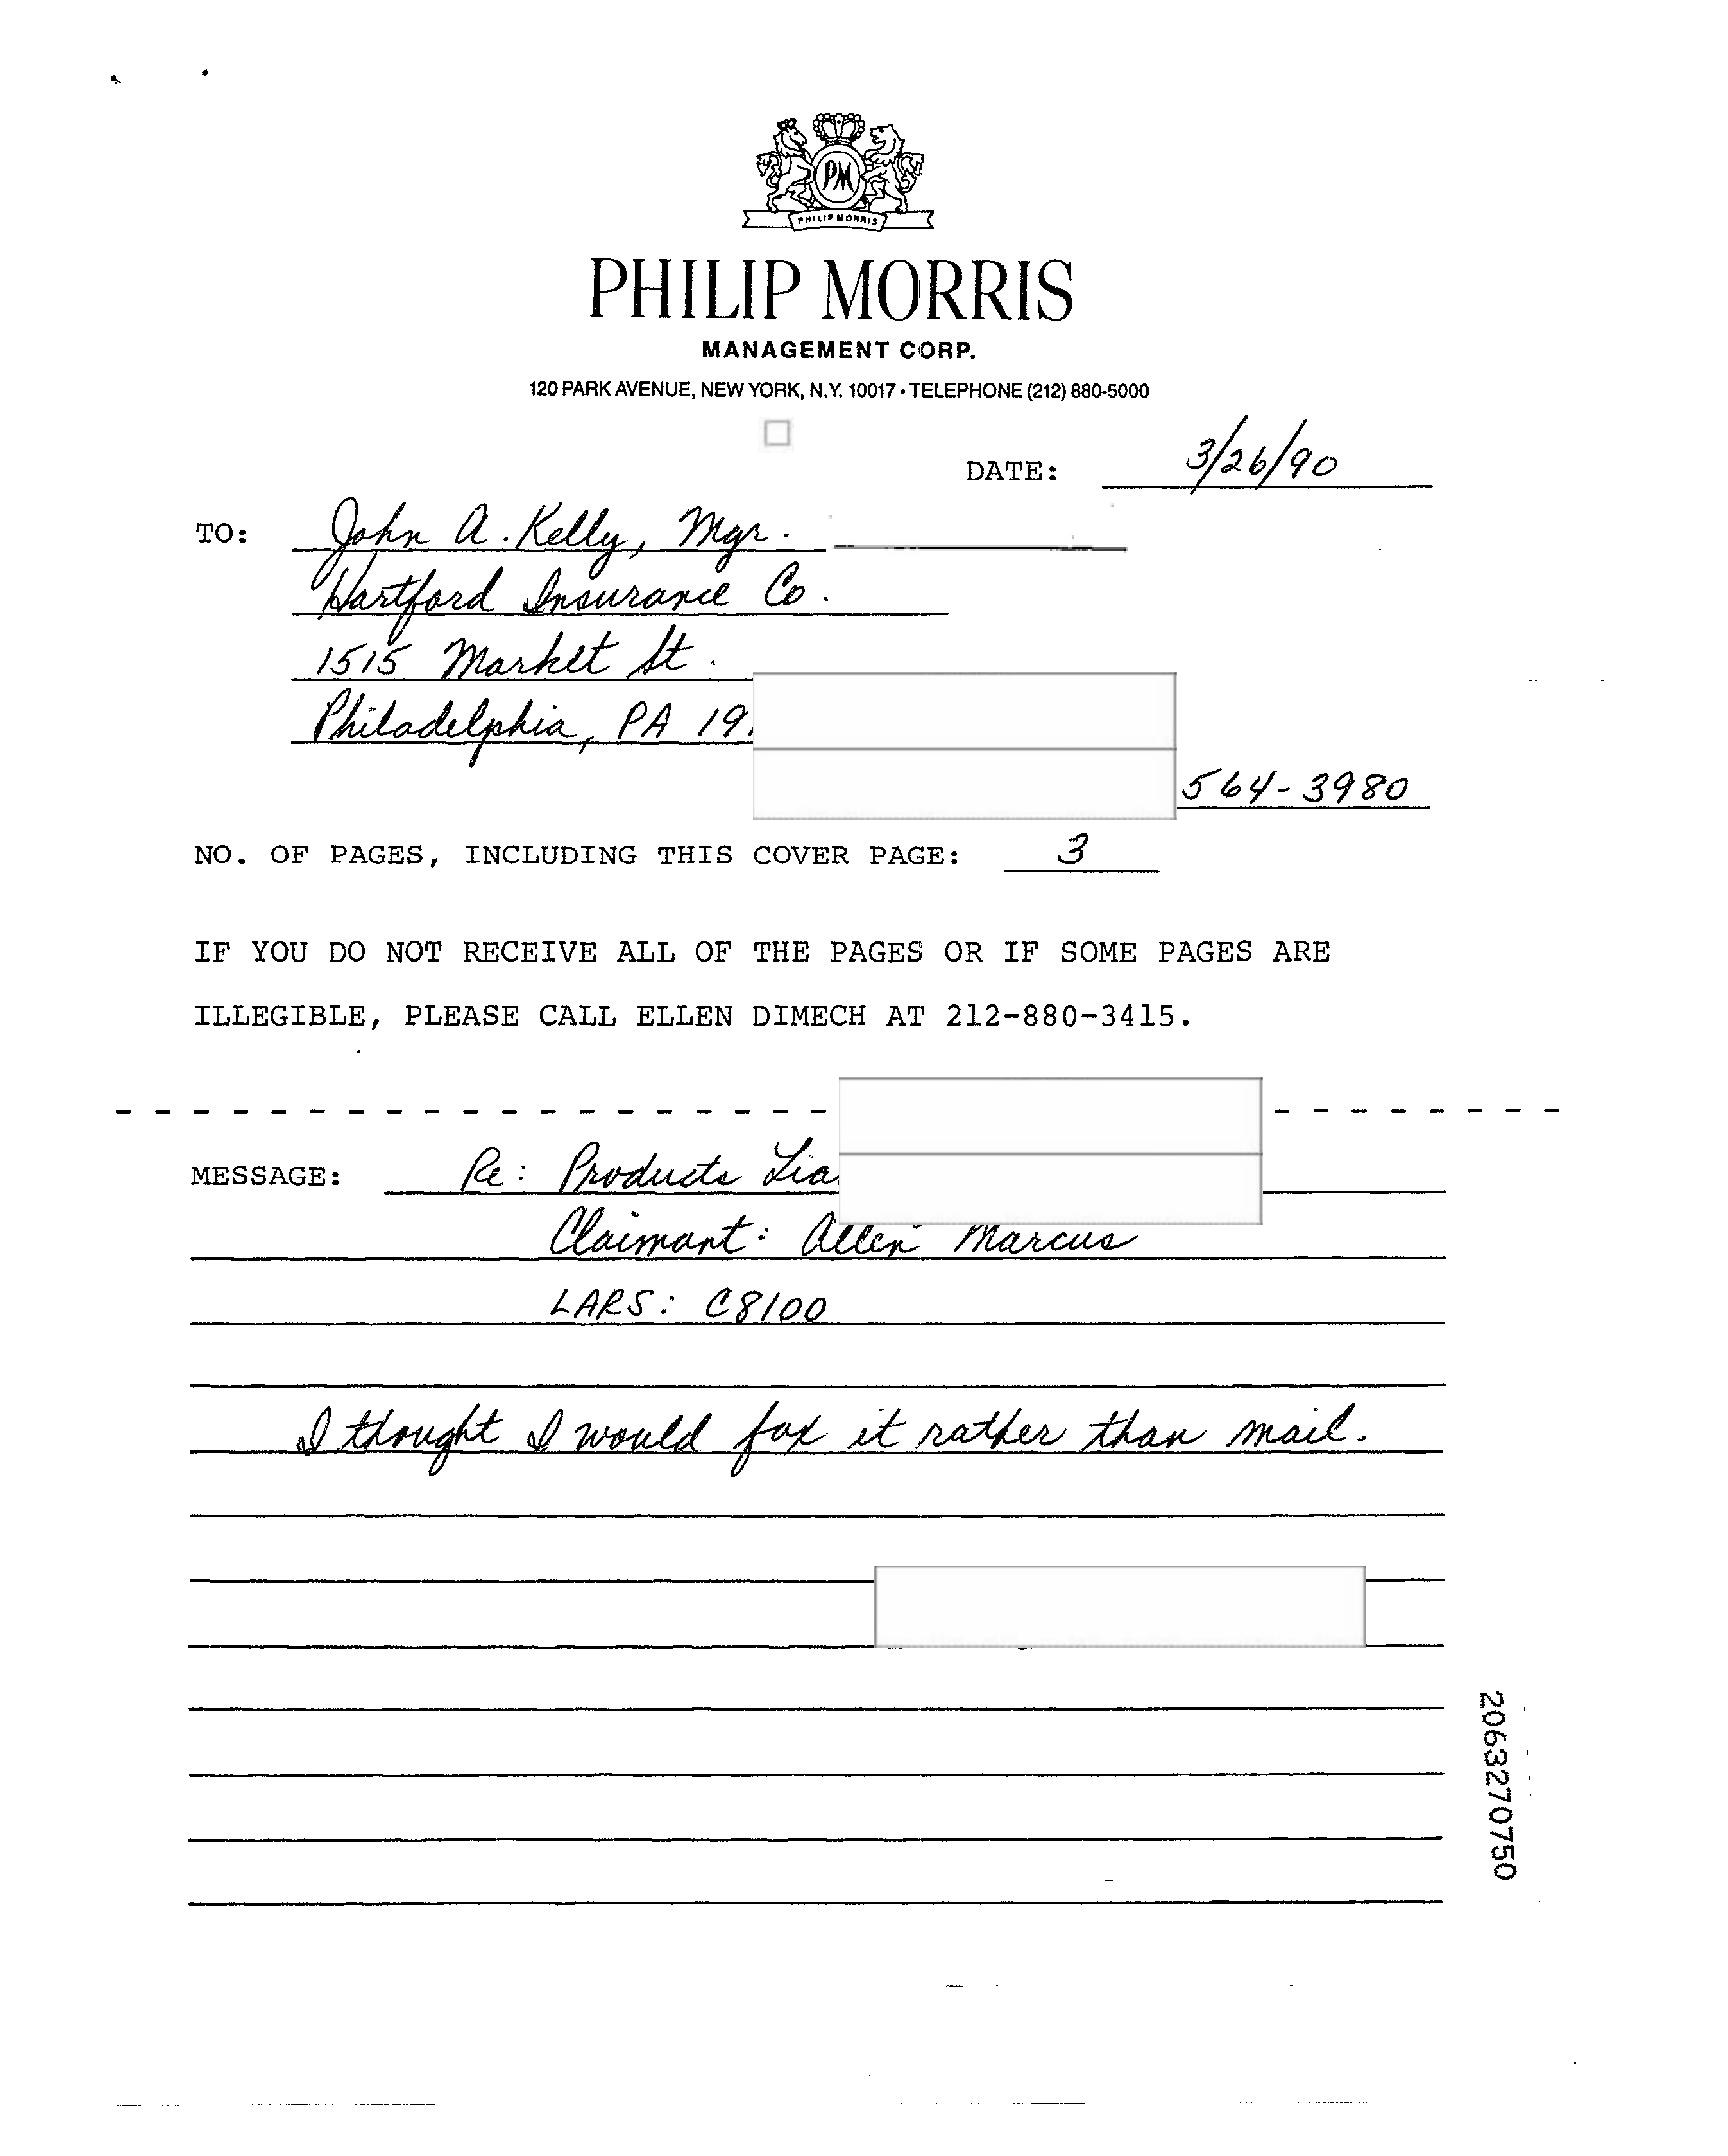 PM
PHILIP MORRIS
PHILIP MORRIS
MANAGEMENT CORP.
120 PARK AVENUE, NEW YORK, N.Y. 10017 • TELEPHONE (212) 880-5000
DATE: 3/26/90
TO: John A. Kelly, Mgr.
Hartford Insurance Co.
1515 Market St.
Philadelphia, PA
564-3980
NO. OF PAGES, INCLUDING THIS COVER PAGE: 3
IF YOU DO NOT RECEIVE ALL OF THE PAGES OR IF SOME PAGES ARE
ILLEGIBLE, PLEASE CALL ELLEN DIMECH AT 212-880-3415.
MESSAGE: Re: Products
Claimant: Allen Marcus
LARS: C8100
I thought I would fax it rather than mail.
2063270750